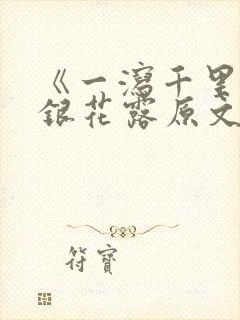 《一瀉千里
銀花露原文
符寶